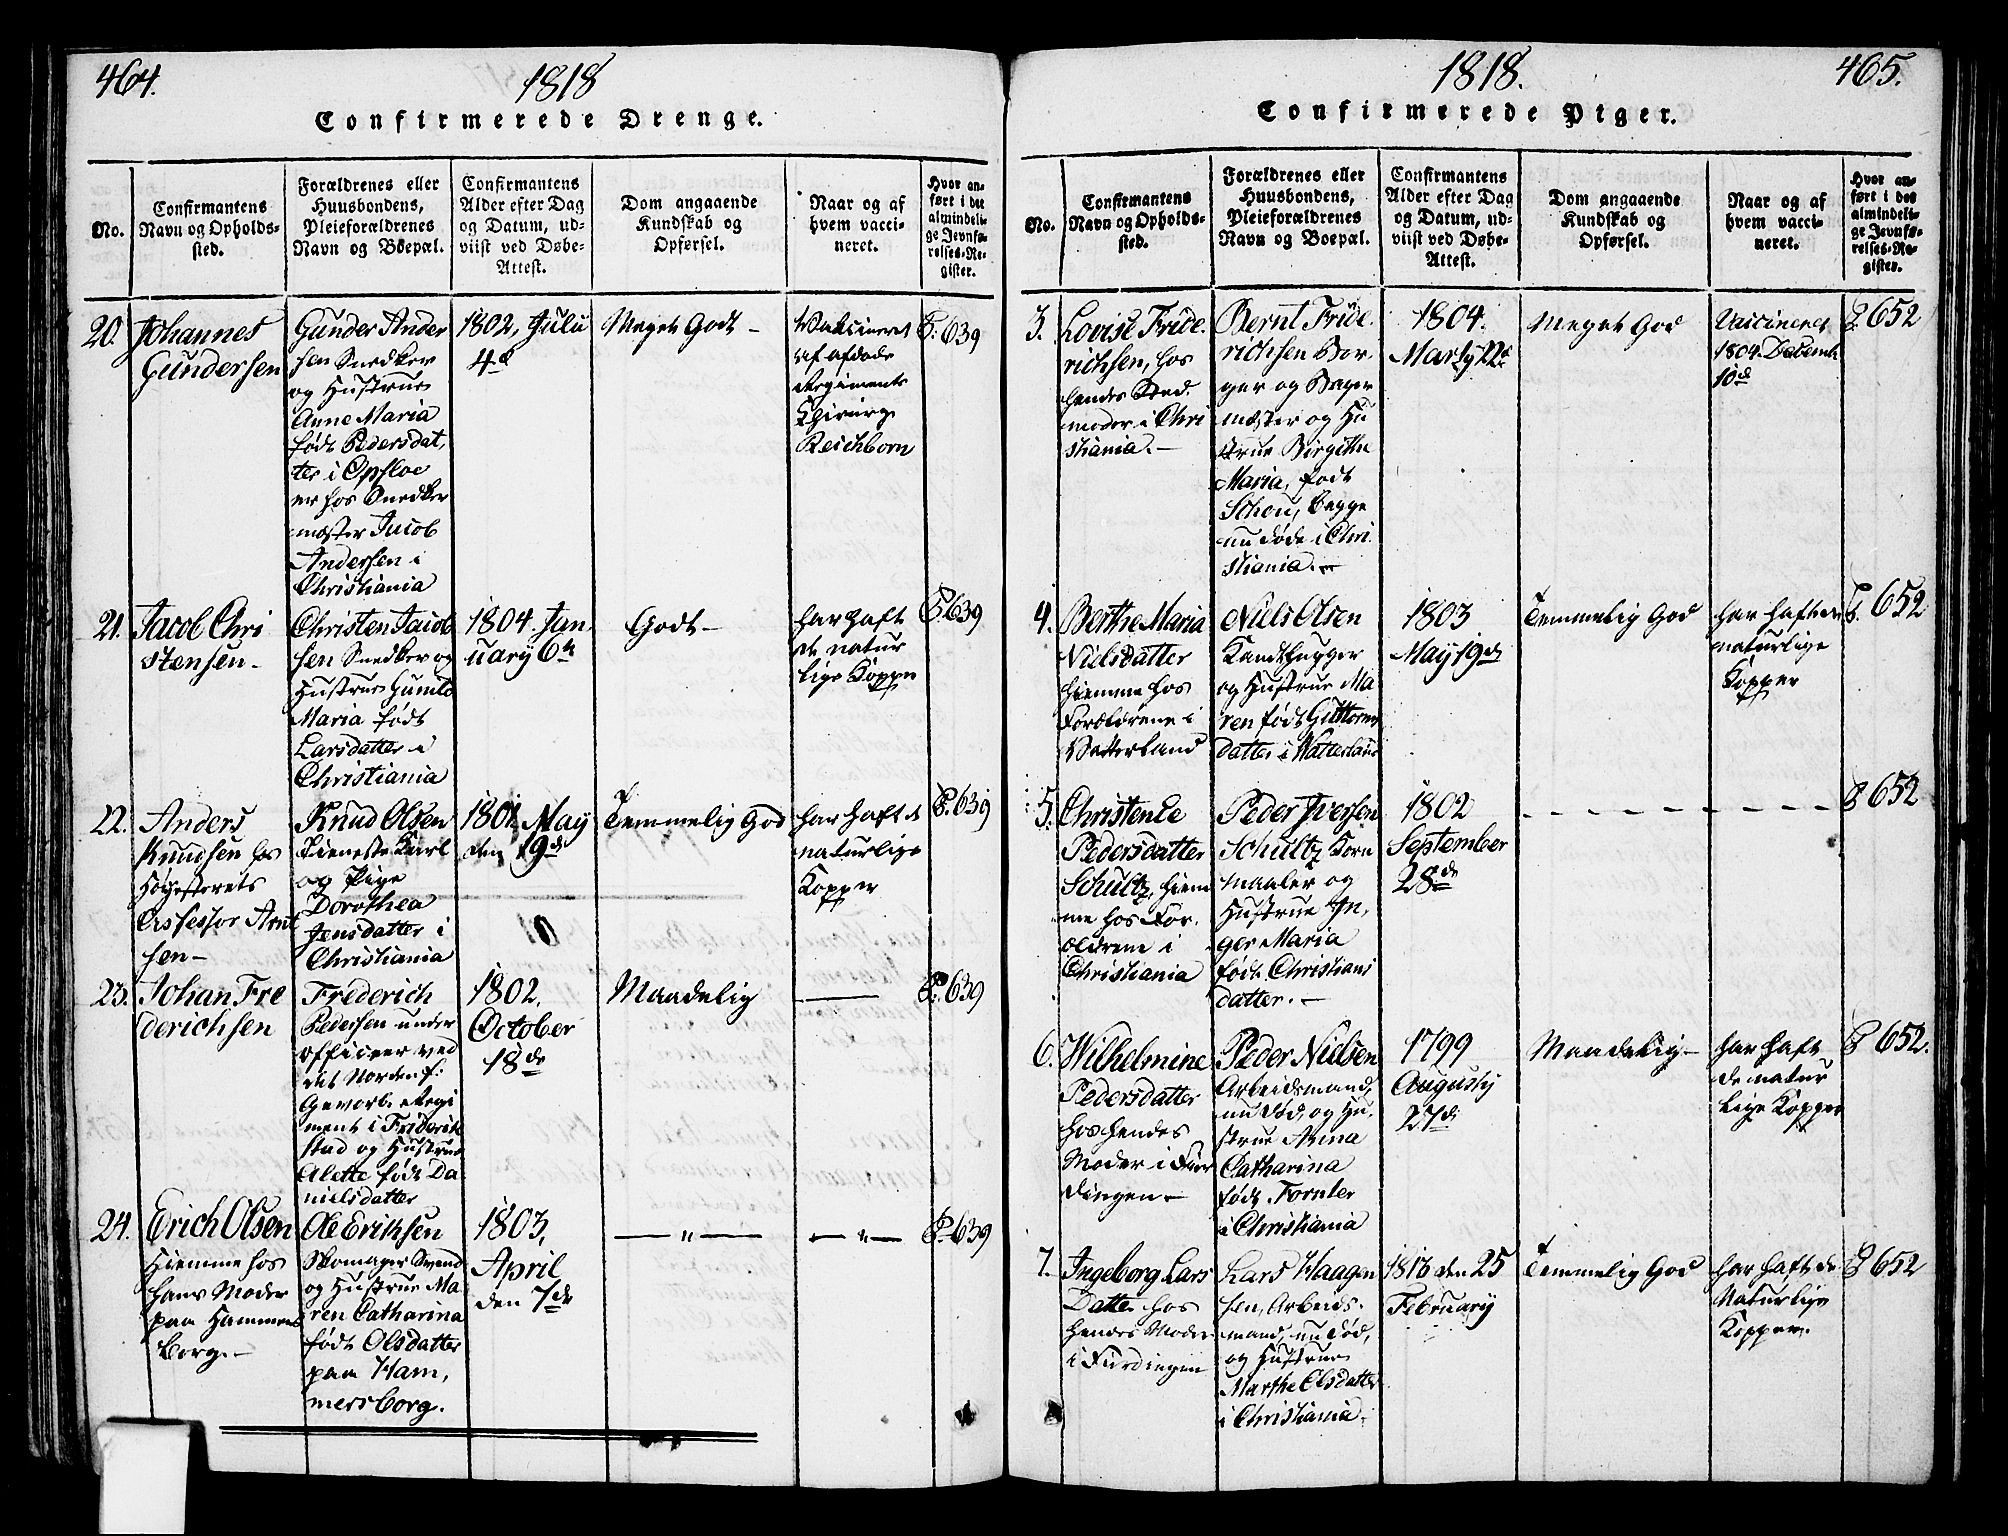 464.
1818
Confirmerede Drenge.
No.
Confirmantens
Navn og Opholds-
sted.
Forældrenes eller
Huusbondens,
Pleieforældrenes
Navn og Boepæl.
Confirmantens
Alder efter Dag
og Datum, ud-
viist ved Døbe-
Attest.
Dom angaaende
Kundskab og
Opførsel.
Naar og af
hvem vacci-
neret.
Hvor an-
ført i det
almindeli-
ge Jevnfø-
relses-Re-
gister.
20.
Johannes
Gundersen
Gunder Ander
sen Snedker
og Hustrue
Anne Maria
født Pedersdat,
ter i Opsloe
er hos Snedker
mester Jacob
Andersen i
Christiania
1802, July
4de
Meget Godt –
Vakcineret
af afdøde
Regiments
Chirurg
Reichborn
P. 639
21.
Jacob Chri
stensen –
Christen Jacob
sen Snedker og
Hustrue Gunild
Maria født
Larsdatter i
Christiania
1804. Jan
uary 6te
Godt –
har haft
de natur
lige Kopper
P. 639
22.
Anders
Knudsen hos
Høyesterets
Assessor Arnt
sen –
Knud Olsen
tieneste Karl
og Pige
Dorothea
Jensdatter i
Christiania
1801. May
den 19de
Temmelig God
har haft de
naturlige
Kopper
P. 639
23.
Johan Fre
derichsen
Frederich
Pedersen under
officeer ved
det Nordenf:
Gevorbe Regi
ment i Friderik
stad og Hustrue
Alette født Da
nielsdatter
1802.
October
18de
Maadelig
———
P. 639
24.
Erich Olsen
Hiemme hos
hans Moder
paa Hammers
borg. –
Ole Eriksen
Skomager Svend
og Hustrue Ma
ren Catharina
født Olsdatter
paa Ham,
mersborg.
1803,
April
den 7de
— " —
— " —
P. 639
1818.
465.
Confirmerede Piger.
No.
Confirmantens
Navn og Opholds-
sted.
Forældrenes eller
Huusbondens,
Pleieforældrenes
Navn og Boepæl.
Confirmantens
Alder efter Dag
og Datum, ud-
viist ved Døbe-
Attest.
Dom angaaende
Kundskab og
Opførsel.
Naar og af
hvem vacci-
neret.
Hvor an-
ført i det
almindeli-
ge Jevnfø-
relses-Re-
gister.
3.
Lovise Fride.
richsen, hos
hendes Sted.
moder i Chri
stiania. –
Bernt Fride.
richsen Bor.
ger og Bager
mester og Hu
strue Birgithe
Maria, født
Schou, begge
nu døde i Chri.
stiania. –
1804.
Marty 22de
Meget God
Vaccineret
1804. Decemb
10de
P. 652
4.
Berthe Maria
Nielsdatter
hiemme hos
Forældrene i
Vatterland
Niels Olsen
Kandthugger
og Hustrue Ma
ren født Guttorms
datter i Watterland
1803
May 19de
Temmelig God
har haft de
naturlige
Kopper
P. 652
5.
Christence
Pedersdatter
Schultz, hiem
me hos For.
ældrene i
Christiania
Peder Iversen
Schultz Korn
maaler og
Hustrue In,
ger Maria
født Christians
datter. –
1802
September
28de
– – – – – – – – – –
P 652
6.
Wilhelmine
Pedersdatter
hos hendes
Moder i Fier
dingen –
Peder Nielsen
Arbeidsmand,
nu død, og Hu.
strue Anna
Catharina
født
i Christiania
1799
Augusty
27de
Maadelig –
har haft
de natur
lige Kopper
P 652.
7.
Ingeborg Lars
Datter hos
hendes Moder
i Fierdingen
Lars Haagen
sen, Arbeids.
mand, nu død,
og Hustrue
Marthe Olsdatter
i Christiania.
den 25
February
Temmelig God
har haft de
Naturlige
Kopper.
P 652